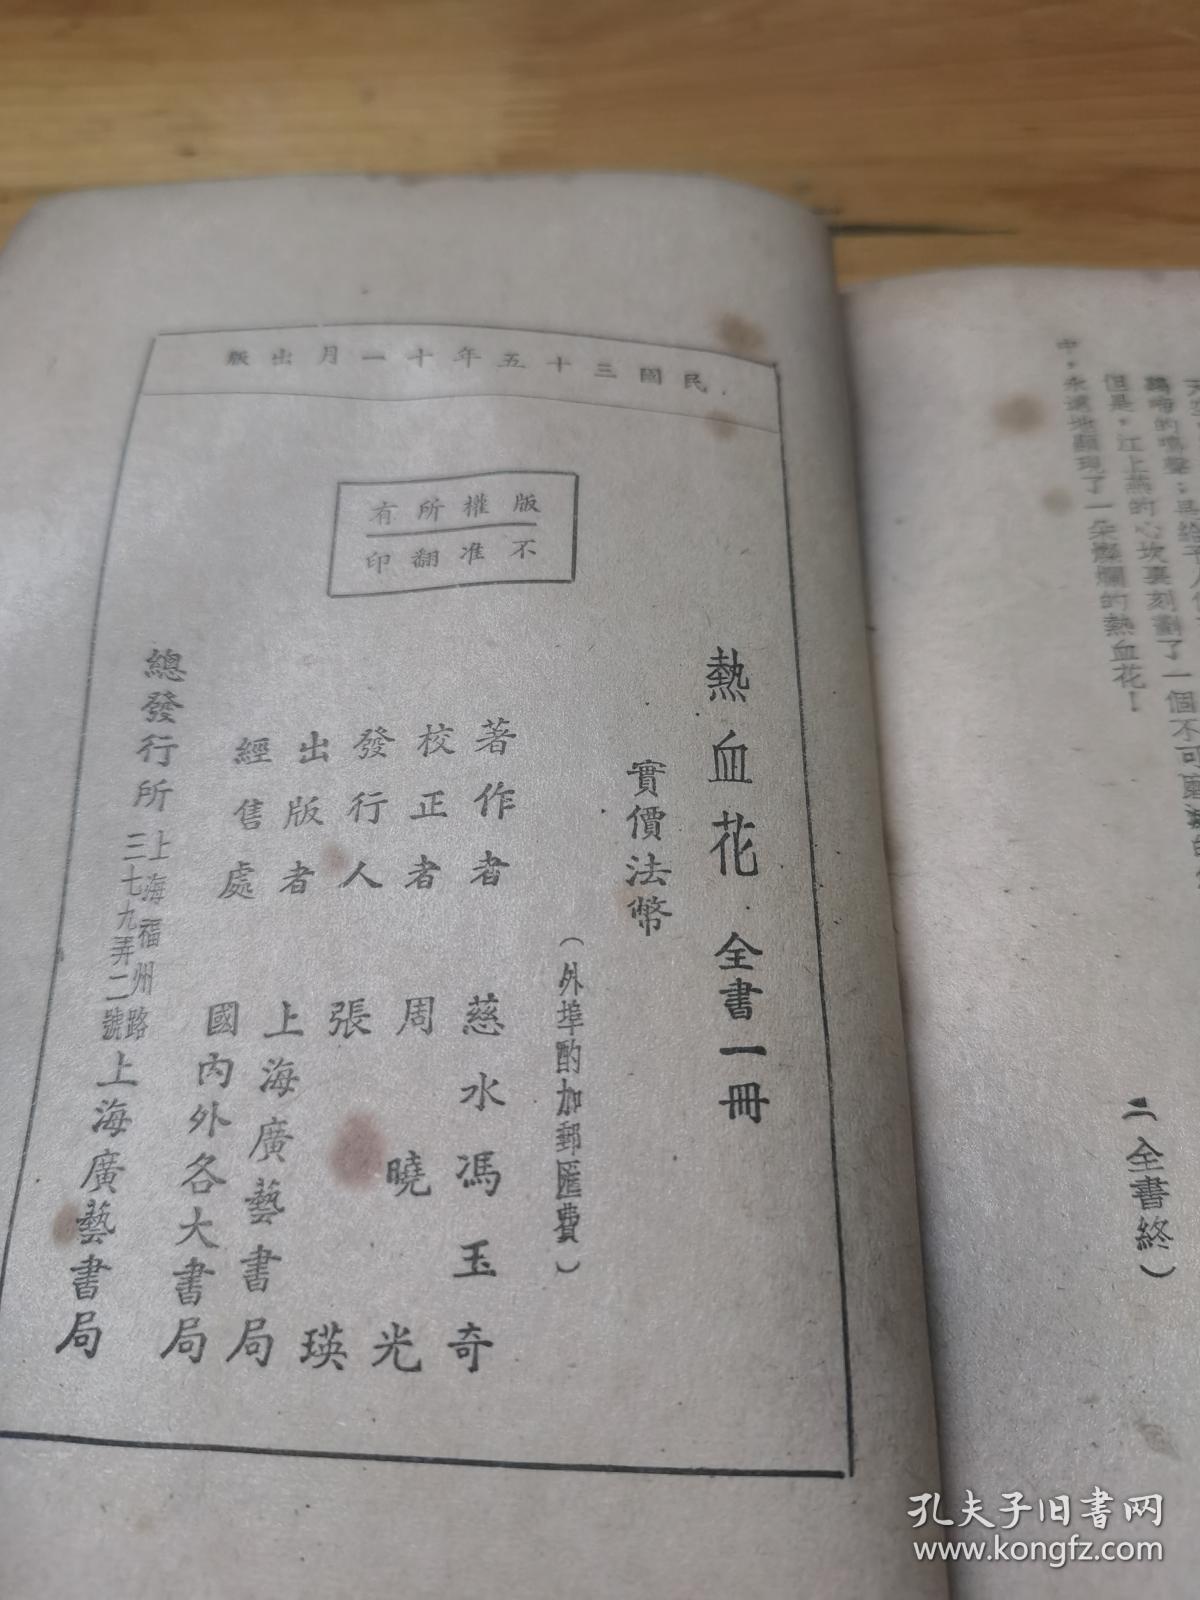 民國三十五年十一月出版
版權所有
不准翻印
熱血花 全書一冊
實價法幣
（外埠酌加郵匯費）
著作者 慈水馮玉奇
校正者 周曉光
發行人 張瑛
出版者 上海廣藝書局
經售處 國內外各大書局
總發行所 上海福州路三七九弄二號 上海廣藝書局
但是，江上燕的心坎裏刻劃了一個不可
中，永遠地顯現了一朵燦爛的熱血花！
（全書終）
孔夫子旧书网
www.kongfz.com